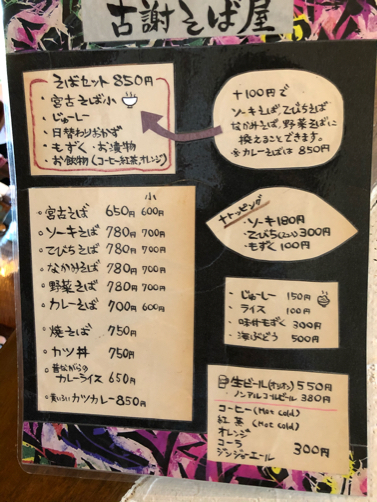 古謝そば屋
そばセット 850円
・宮古そば小
・じゅーしー
・日替わりおかず
・もずく ・お漬物
・お飲物(コーヒー紅茶オレンジ)
+100円で
ソーキそば、てびちそば
なかみそば、野菜そばに
換えることできます。
※カレーそばは 850円
小
・宮古そば 650円 600円
・ソーキそば 780円 700円
・てびちそば 780円 700円
・なかみそば 780円 700円
・野菜そば 780円 700円
・カレーそば 700円 600円
・焼そば 750円
・カツ丼 750円
・昔ながらの
カレーライス 650円
・黄いろいカツカレー 850円
+トッピング
・ソーキ 180円
・てびち(2コ) 300円
・もずく 100円
・じゅーしー 150円
・ライス 100円
・味付もずく 300円
・海ぶどう 500円
生ビール(オリオン) 550円
・ノンアルコールビール 380円
コーヒー(Hot cold)
紅茶(Hot cold)
オレンジ
コーラ
ジンジャエール
300円